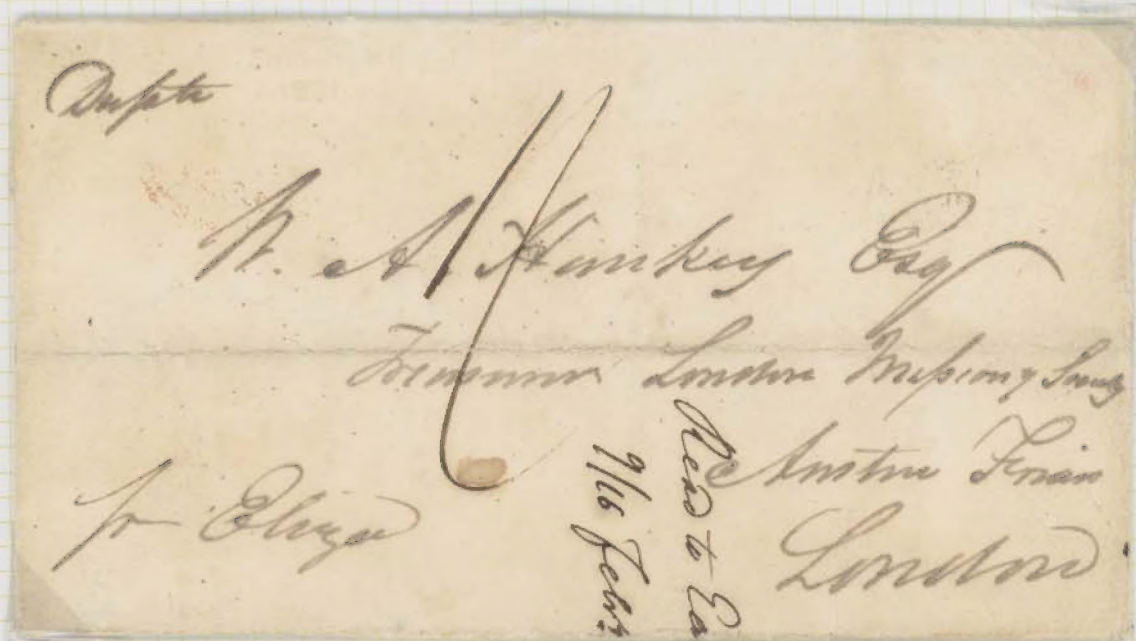 Dupte
W. A. Hankey Esq
Treasurer London Missiony Society
Austin Friars
London
pr Eliza
Read to Ea
9/16 Feby